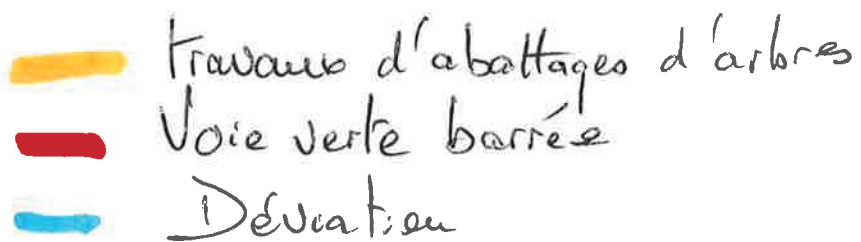 travaux d'abattages d'arbres
Voie verte barrée
Déviation